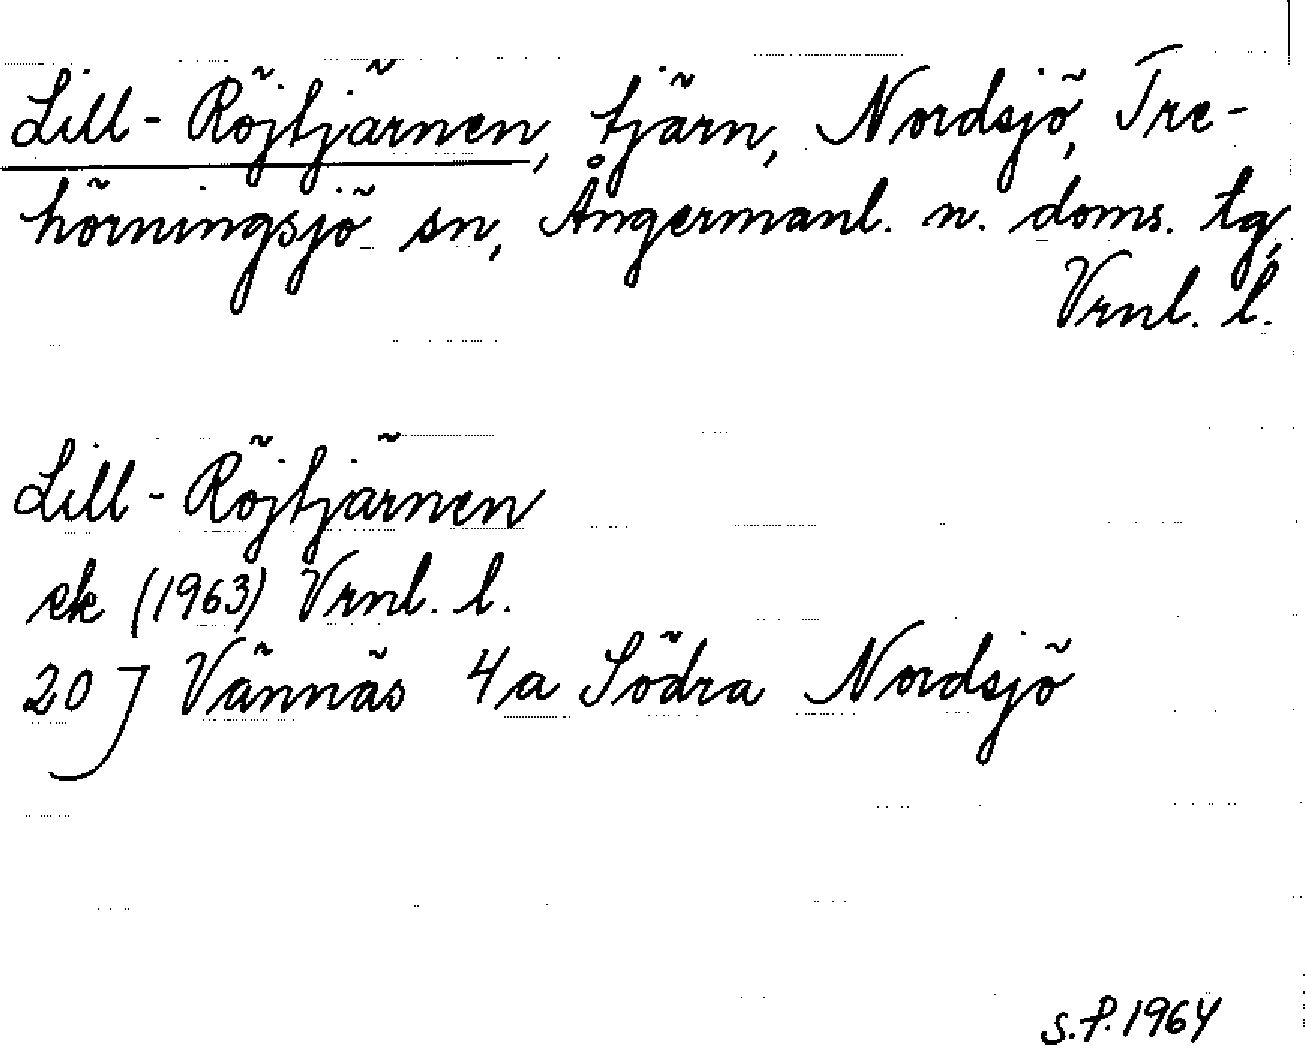 Lill-Röjtjärnen, tjärn, Nordsjö, Tre-
hörningsjö sn, Ångermanl. n. doms. tg,
Vrnl. l.
Lill-Röjtjärnen
ek (1963) Vrnl. l.
20 J Vännäs 4a Södra Nordsjö
S.P. 1964